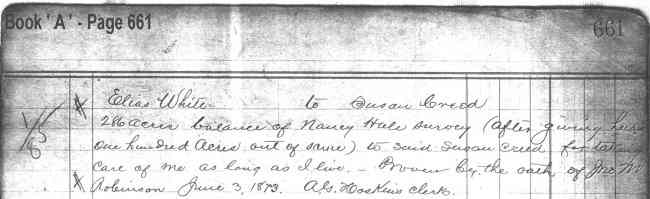 Book 'A' - Page 661
661
Elias White to Susan Creed
286 acres balance of Nancy Hale survey (after giving
one hundred Acres out of same) to said Susan Creed for
care of me as long as I live. - Proven by the oath of Jno
Robinson June 3, 1873. A.G. Hoskins clerk.